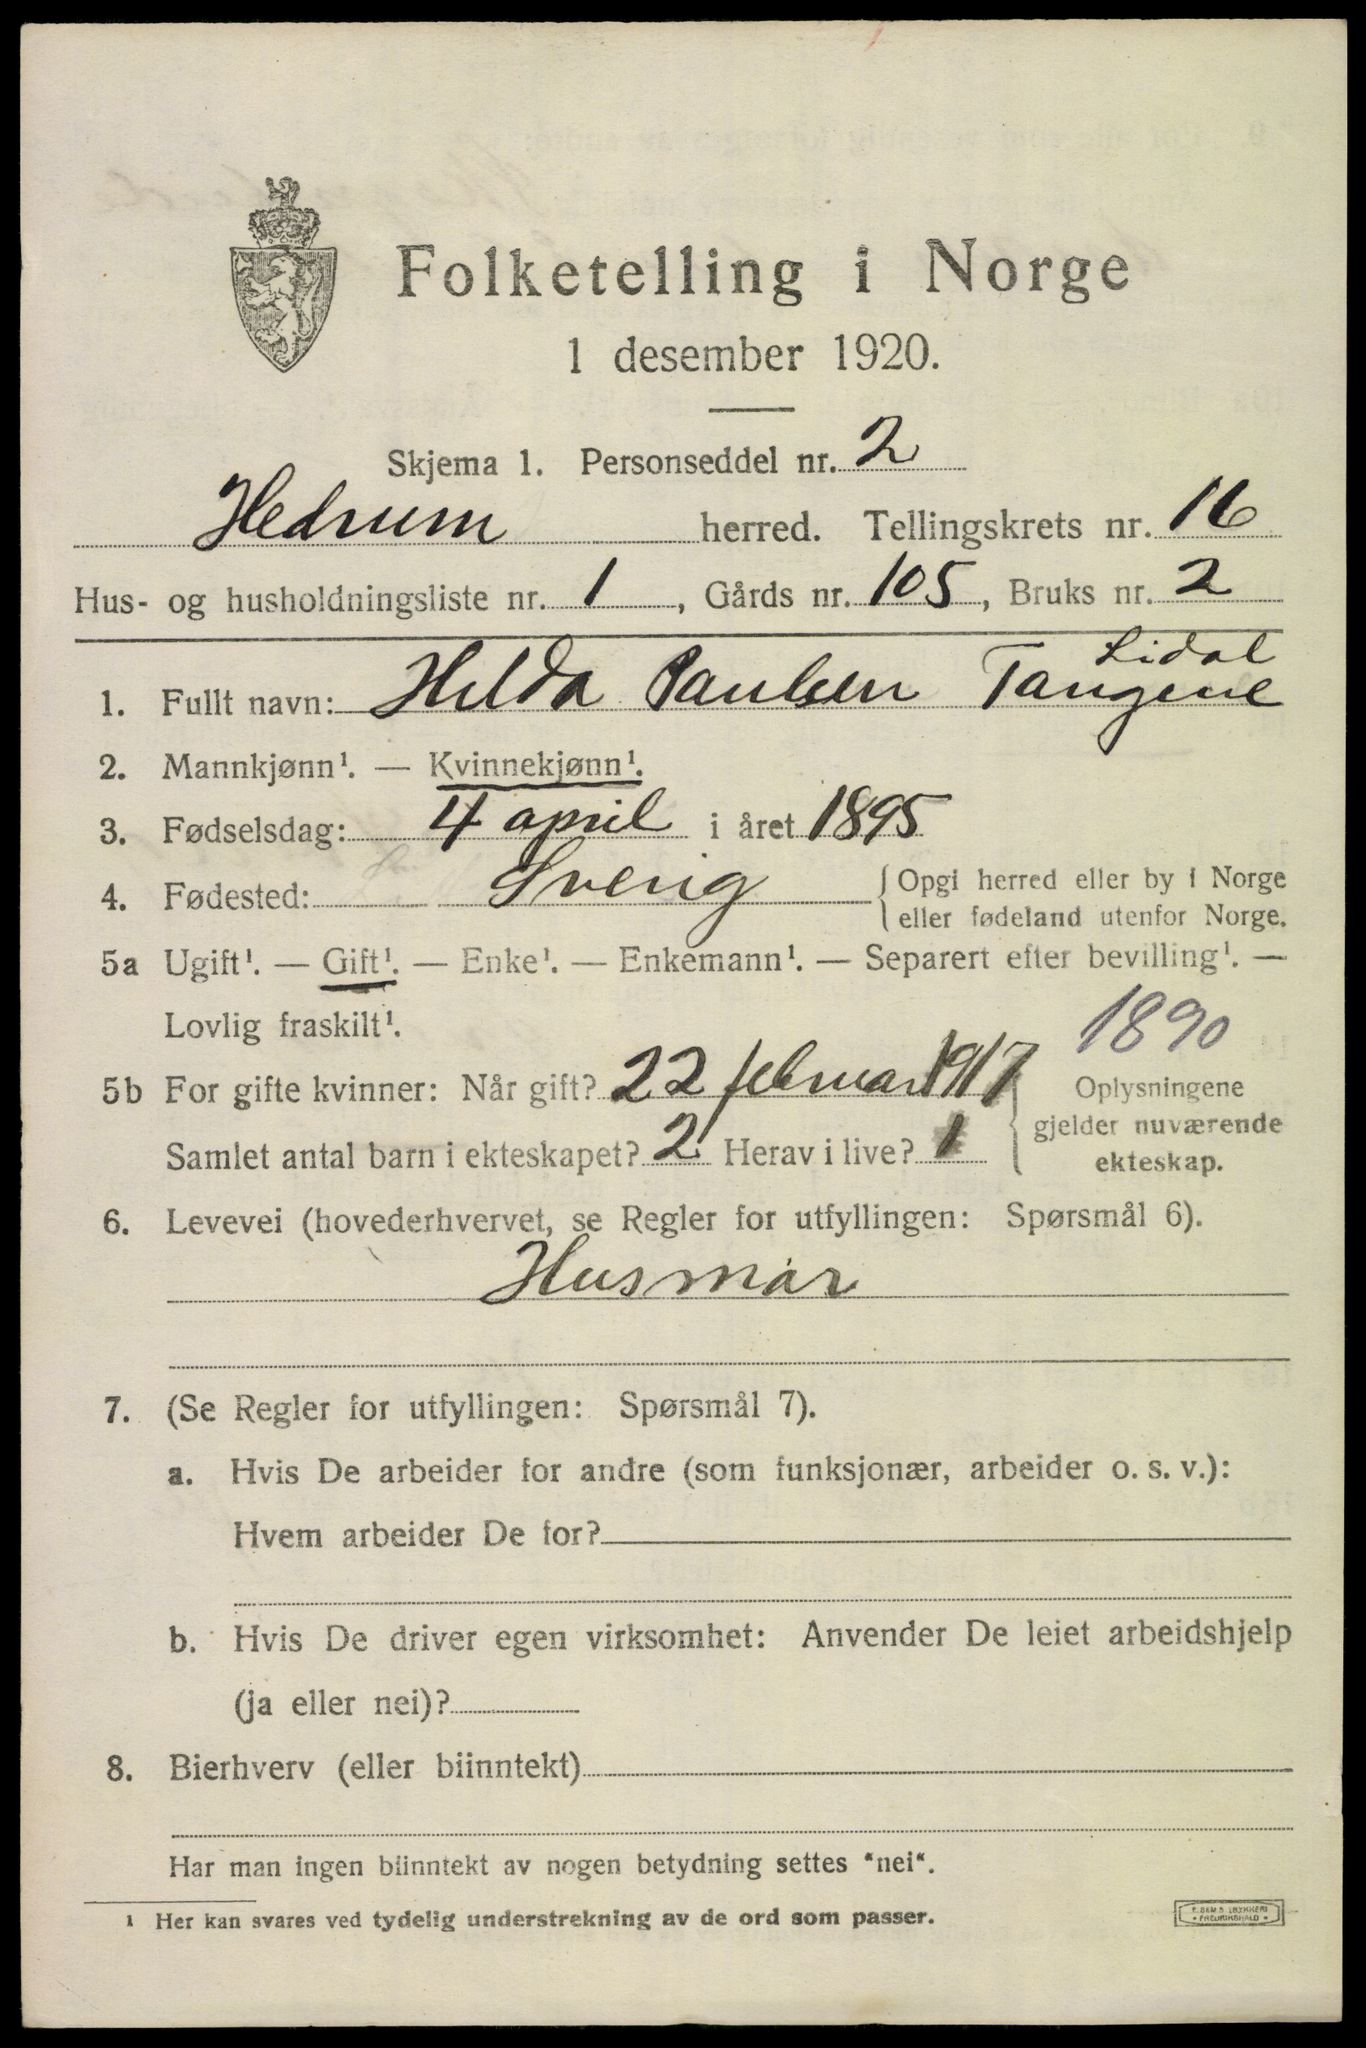 Folketelling i Norge
1 desember 1920.
Skjema 1. Personseddel nr. 2
Hedrum herred. Tellingskrets nr. 16
Hus- og husholdningsliste nr. 1, Gårds nr. 105, Bruks nr. 2
Lidal
1. Fullt navn: Hilda Paulsen Tangene
2. Mannkjønn¹. — Kvinnekjønn¹.
3. Fødselsdag: 4 april i året 1895
4. Fødested: Sverig { Opgi herred eller by i Norge
eller fødeland utenfor Norge.
5a Ugift¹. — Gift¹. — Enke¹. — Enkemann¹. — Separert efter bevilling¹. —
Lovlig fraskilt¹.
1890
5b For gifte kvinner: Når gift? 22 februar 1917
Samlet antal barn i ekteskapet? 2 Herav i live? 1
Oplysningene
gjelder nuværende
ekteskap.
6. Levevei (hovederhvervet, se Regler for utfyllingen: Spørsmål 6).
Husmor
7. (Se Regler for utfyllingen: Spørsmål 7).
a. Hvis De arbeider for andre (som funksjonær, arbeider o. s. v.):
Hvem arbeider De for?
b. Hvis De driver egen virksomhet: Anvender De leiet arbeidshjelp
(ja eller nei)?
8. Bierhverv (eller biinntekt)
Har man ingen biinntekt av nogen betydning settes "nei".
¹ Her kan svares ved tydelig understrekning av de ord som passer.